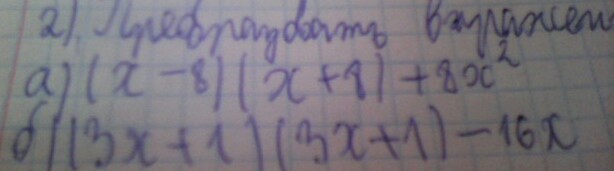 2) Преобразовать выражен
а) (x - 8) (x + 8) + 8x²
б) (3x + 1) (3x + 1) - 16x